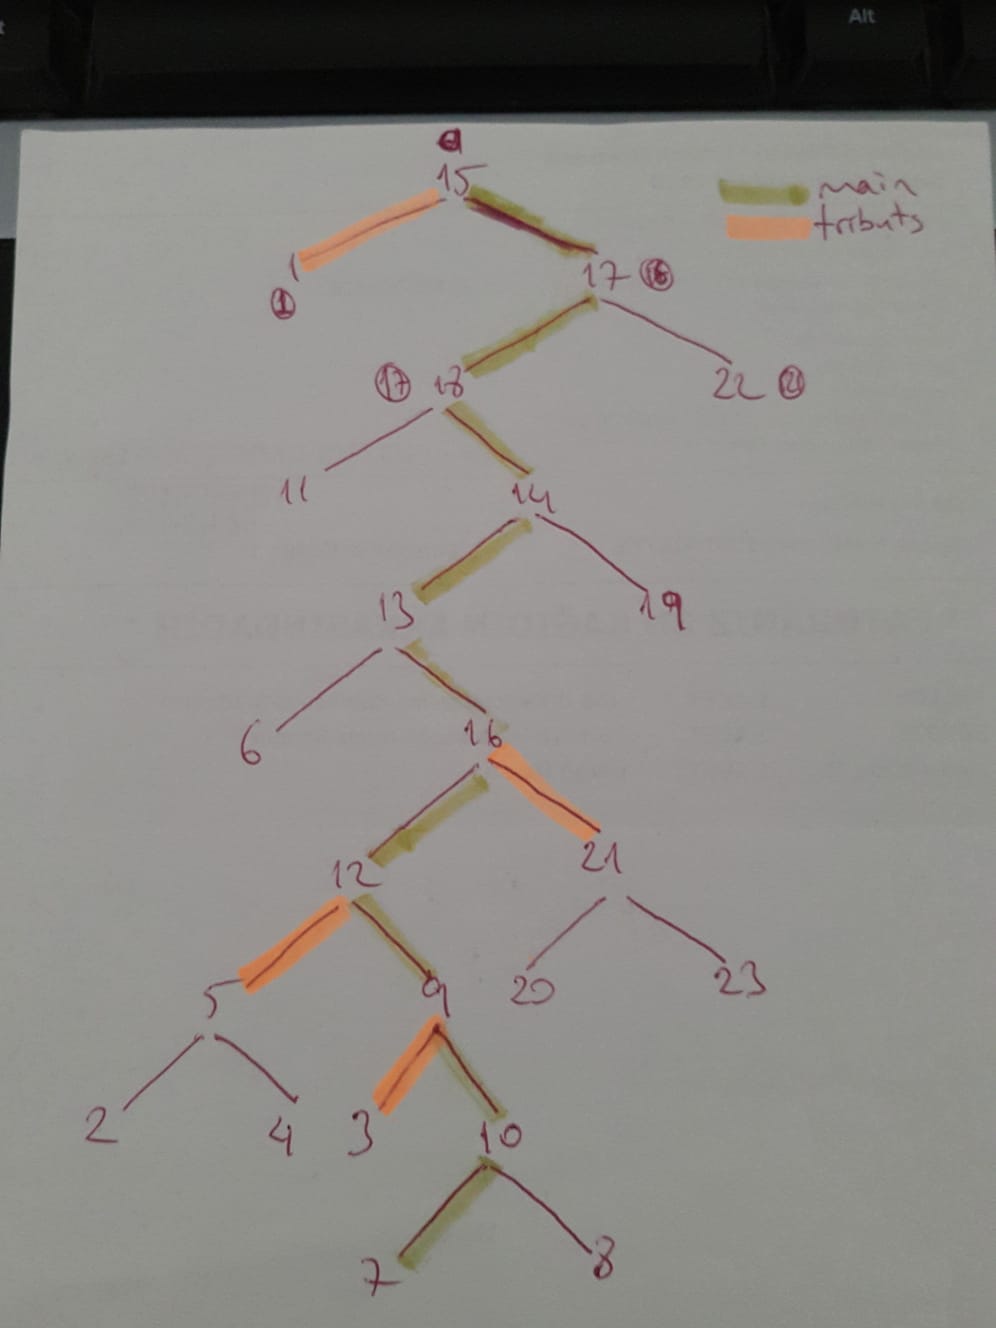 Alt
15
main
tributs
1
1
17 16
17 18
22 21
11
14
13
19
6
16
12
21
5
9
20
23
2
4
3
10
7
8